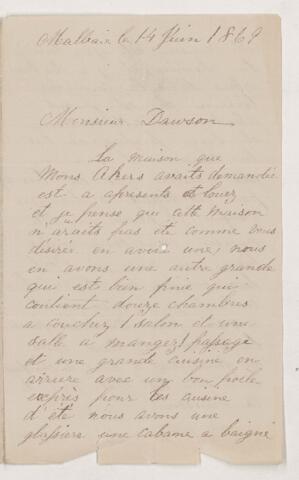 Malbaie le 14 Juin 1869
Monsieur Dawson
La maison que
Mons Akers avaits demandée
est a apresents et louez
et je pense qui cette maison
n'araits pas été comme vous
désirée en avoir une; nous
en avons une autre grande
qui est bien finie qui
contient douze chambres
a couchez 1 salon et une
salle a mangez 1 passage
et une grande cuisine en
arriere avec un bon poele
exprès pour les cuisine
d'été nous avons une
glassiere une cabane a baigné